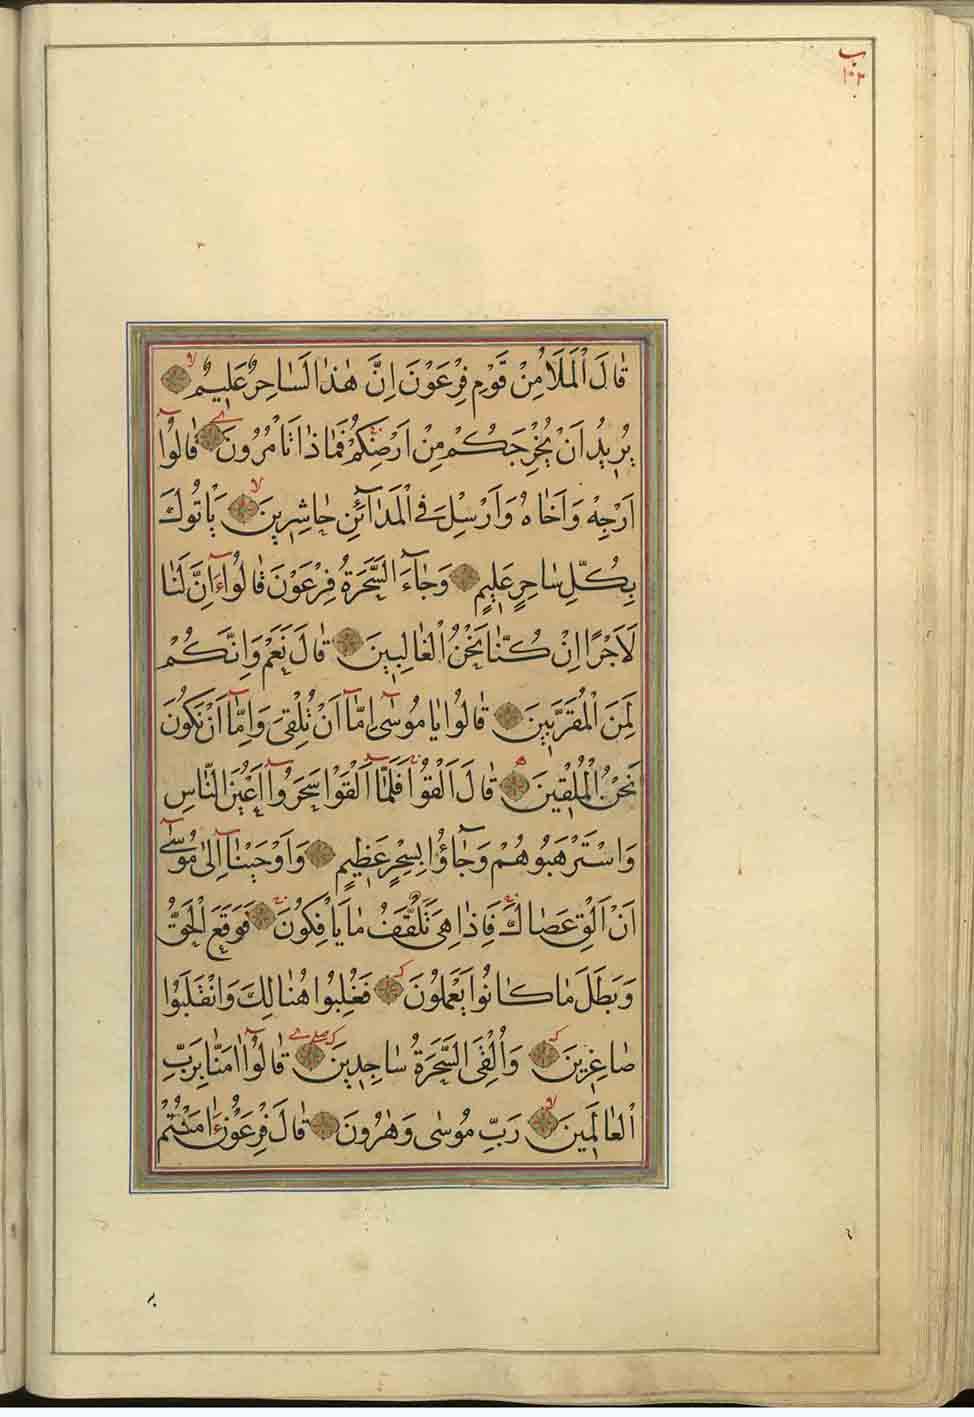 قَالَ الْمَلَأُ مِنْ قَوْمِ فِرْعَوْنَ اِنَّ هٰذَا لَسَاحِرٌ عَلِيمٌ
يُرِيدُ اَنْ يُخْرِجَكُمْ مِنْ اَرْضِكُمْ فَمَاذَا تَأْمُرُونَ قَالُوا
اَرْجِهْ وَاَخَاهُ وَاَرْسِلْ فِي الْمَدَآئِنِ حَاشِرِينَ يَأْتُوكَ
بِكُلِّ سَاحِرٍ عَلِيمٍ وَجَآءَ السَّحَرَةُ فِرْعَوْنَ قَالُوا ءَاِنَّ لَنَا
لَاَجْرًا اِنْ كُنَّا نَحْنُ الْغَالِبِينَ قَالَ نَعَمْ وَاِنَّكُمْ
لَمِنَ الْمُقَرَّبِينَ قَالُوا يَا مُوسٰى اِمَّا اَنْ تُلْقِىَ وَاِمَّا اَنْ نَكُونَ
نَحْنُ الْمُلْقِينَ قَالَ اَلْقُوا فَلَمَّا اَلْقَوْا سَحَرُوا اَعْيُنَ النَّاسِ
وَاسْتَرْهَبُوهُمْ وَجَاؤُا بِسِحْرٍ عَظِيمٍ وَاَوْحَيْنَا اِلٰى مُوسٰى
اَنْ اَلْقِ عَصَاكَ فَاِذَا هِىَ تَلَقَّفُ مَا يَأْفِكُونَ فَوَقَعَ الْحَقُّ
وَبَطَلَ مَا كَانُوا يَعْمَلُونَ فَغُلِبُوا هُنَالِكَ وَانْقَلَبُوا
صَاغِرِينَ وَاُلْقِىَ السَّحَرَةُ سَاجِدِينَ قَالُوا اٰمَنَّا بِرَبِّ
الْعَالَمِينَ رَبِّ مُوسٰى وَهٰرُونَ قَالَ فِرْعَوْنُ ءَامَنْتُمْ